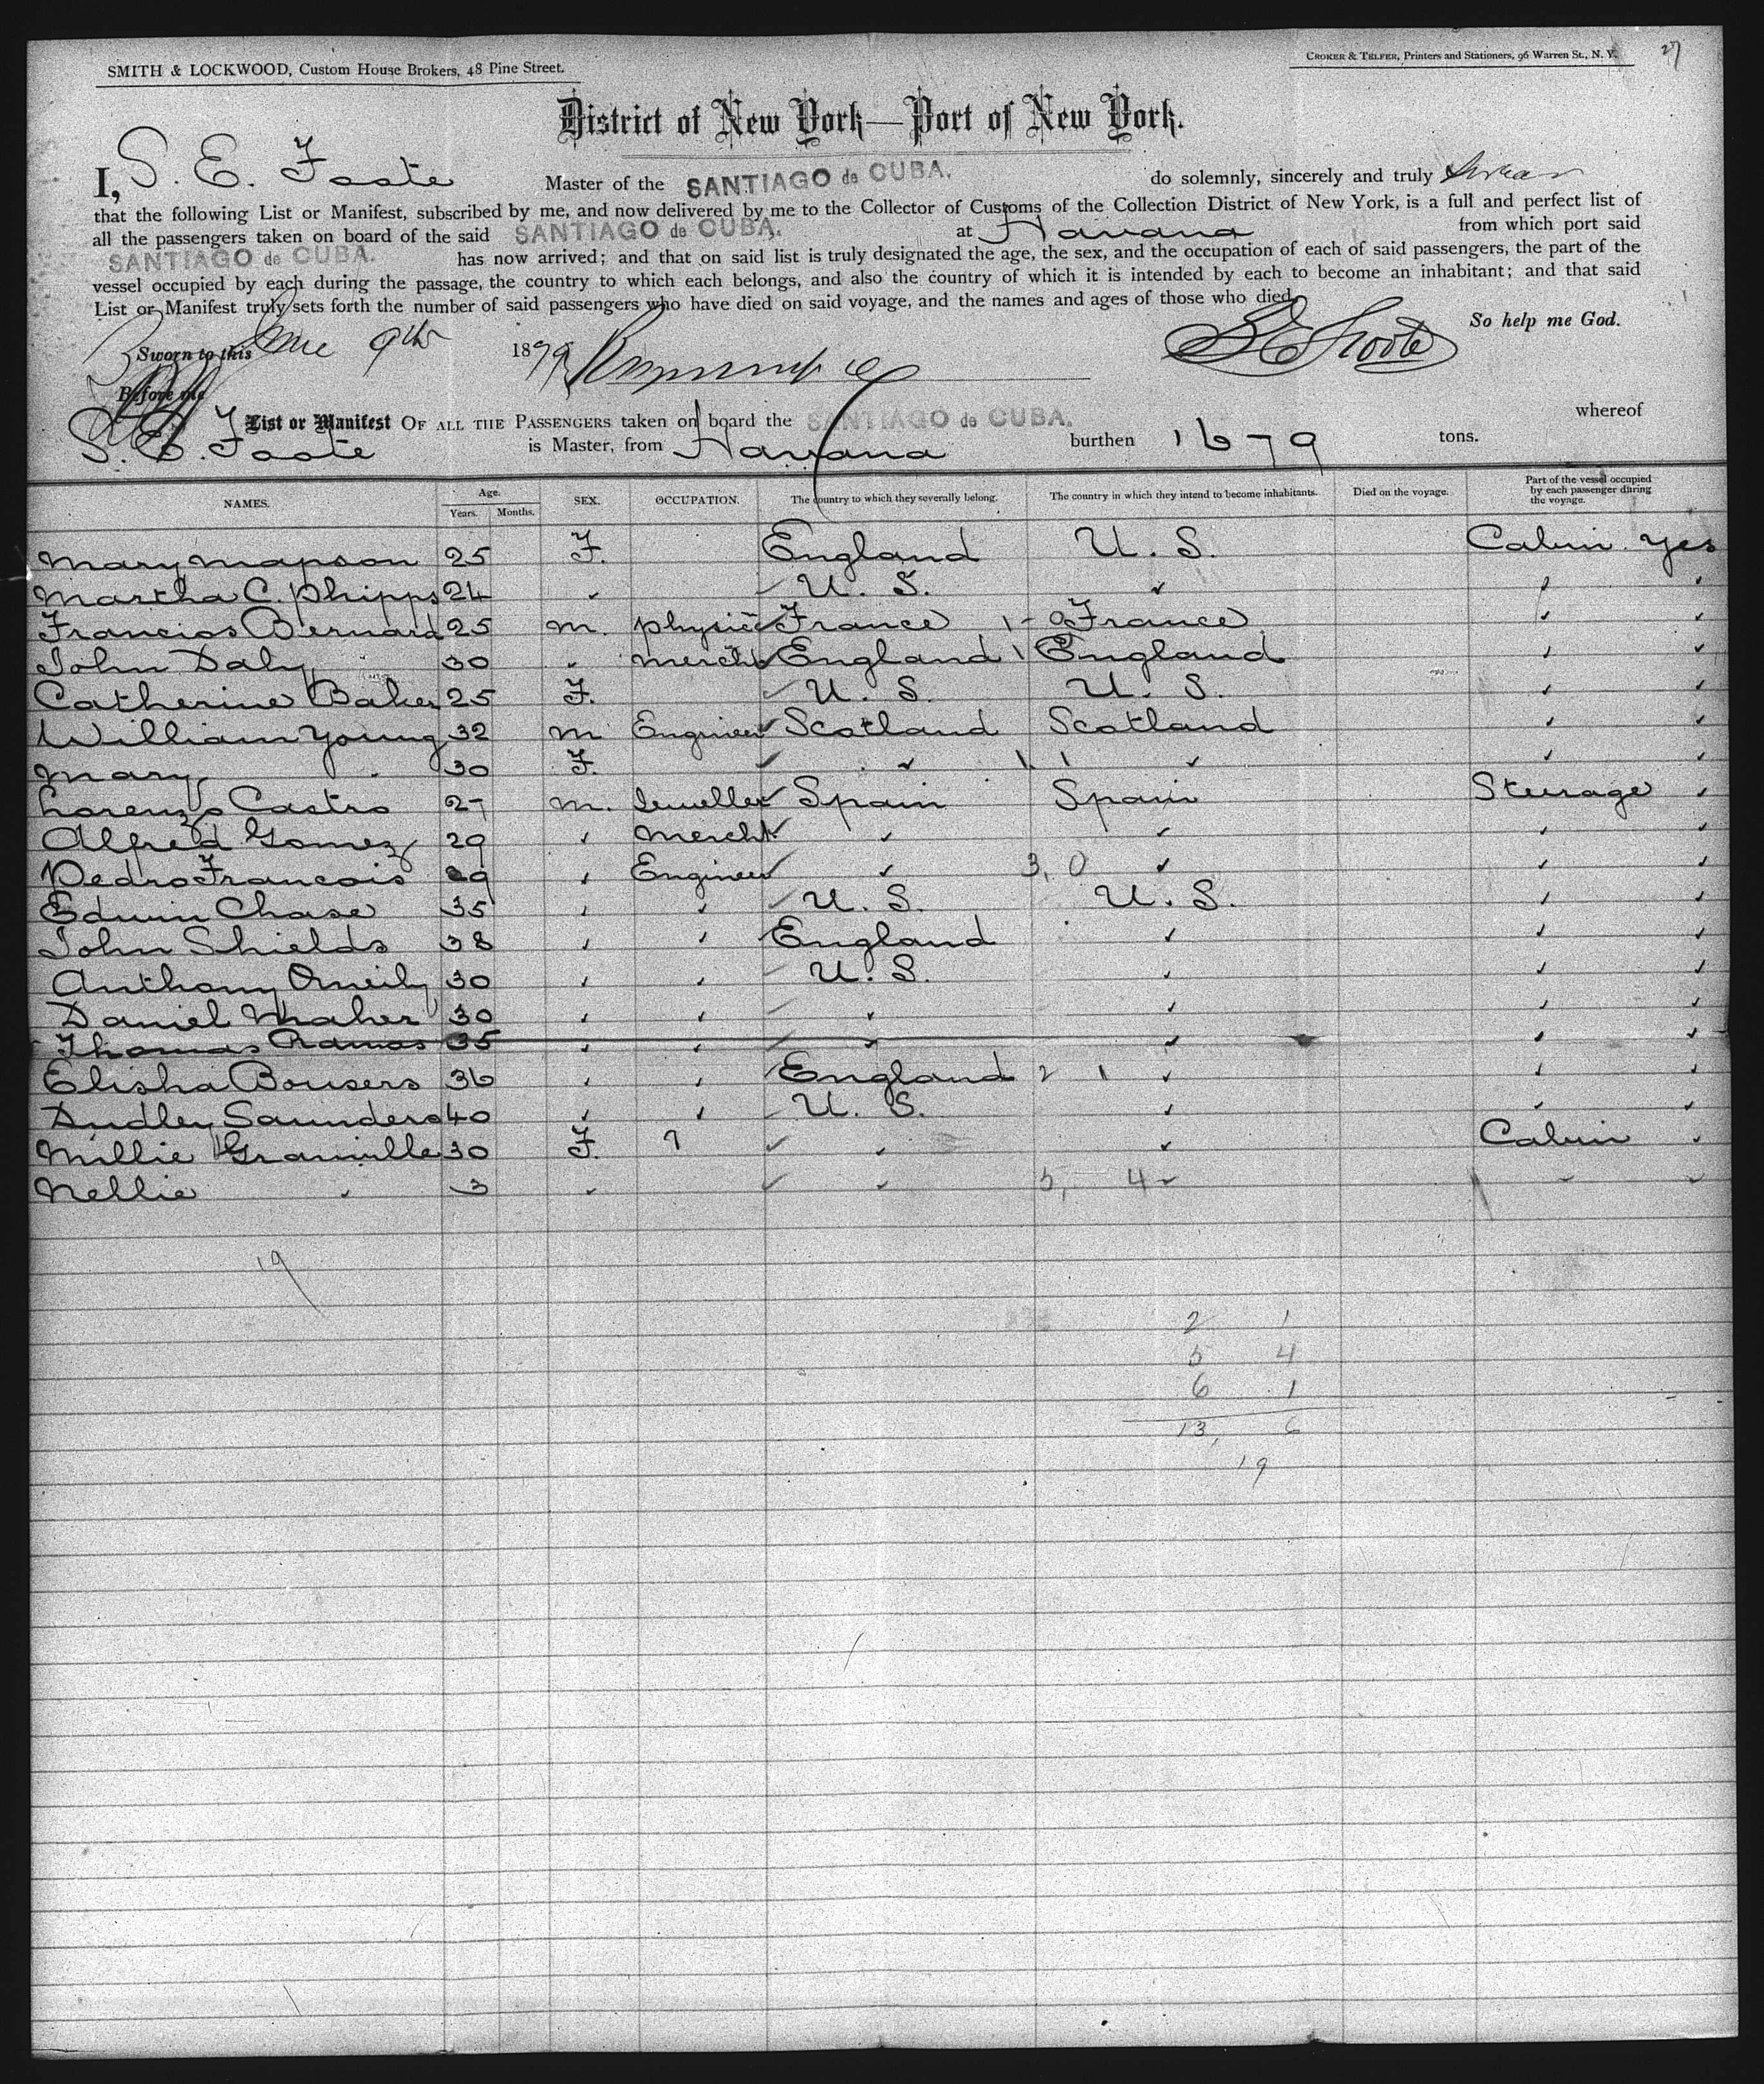 SMITH & LOCKWOOD, Custom House Brokers, 48 Pine Street.
CROKER & TELFER, Printers and Stationers, 96 Warren St., N. Y.
27
District of New York—Port of New York.
I, S. E. Foote Master of the SANTIAGO de CUBA. do solemnly, sincerely and truly swear
that the following List or Manifest, subscribed by me, and now delivered by me to the Collector of Customs of the Collection District of New York, is a full and perfect list of
all the passengers taken on board of the said SANTIAGO de CUBA. at Havana from which port said
SANTIAGO de CUBA. has now arrived; and that on said list is truly designated the age, the sex, and the occupation of each of said passengers, the part of the
vessel occupied by each during the passage, the country to which each belongs, and also the country of which it is intended by each to become an inhabitant; and that said
List or Manifest truly sets forth the number of said passengers who have died on said voyage, and the names and ages of those who died.
So help me God.
Sworn to this June 9th 1879 S E Foote
Before me
List or Manifest OF ALL THE PASSENGERS taken on board the SANTIAGO de CUBA. whereof
S. E. Foote is Master, from Havana burthen 1679 tons.
NAMES. Age. Years. Months. SEX. OCCUPATION. The country to which they severally belong. The country in which they intend to become inhabitants. Died on the voyage. Part of the vessel occupied by each passenger during the voyage.
Mary Mapson 25 F. England U. S. Cabin Yes
Martha C. Phipps 24 " U. S. " " "
Francios Bernard 25 m. Physic France 1 - 0 France " "
John Daly 30 " mercht England 1 England " "
Catherine Baker 25 F. U. S. U. S. " "
William Young 32 m Engineer Scotland Scotland " "
Mary " 30 F. " 1 1 " " "
Lorenzo Castro 27 m. Jeweller Spain Spain Steerage "
Alfred Gomez 29 " mercht " " " "
Pedro Francois 29 " Engineer " 3, 0 " " "
Edwin Chase 35 " " U. S. U. S. " "
John Shields 38 " " England " " "
Anthony Oneily 30 " " U. S. " " "
Daniel Maher 30 " " " " " "
Thomas Ramos 35 " " " " " "
Elisha Bousers 36 " " England 2 1 " " "
Dudley Saunders 40 " " U. S. " " "
Millie Granville 30 F. ? " " Cabin "
Nellie " 3 " " 5, 4 " " "
19
2 1
5 4
6 1
13, 6
19